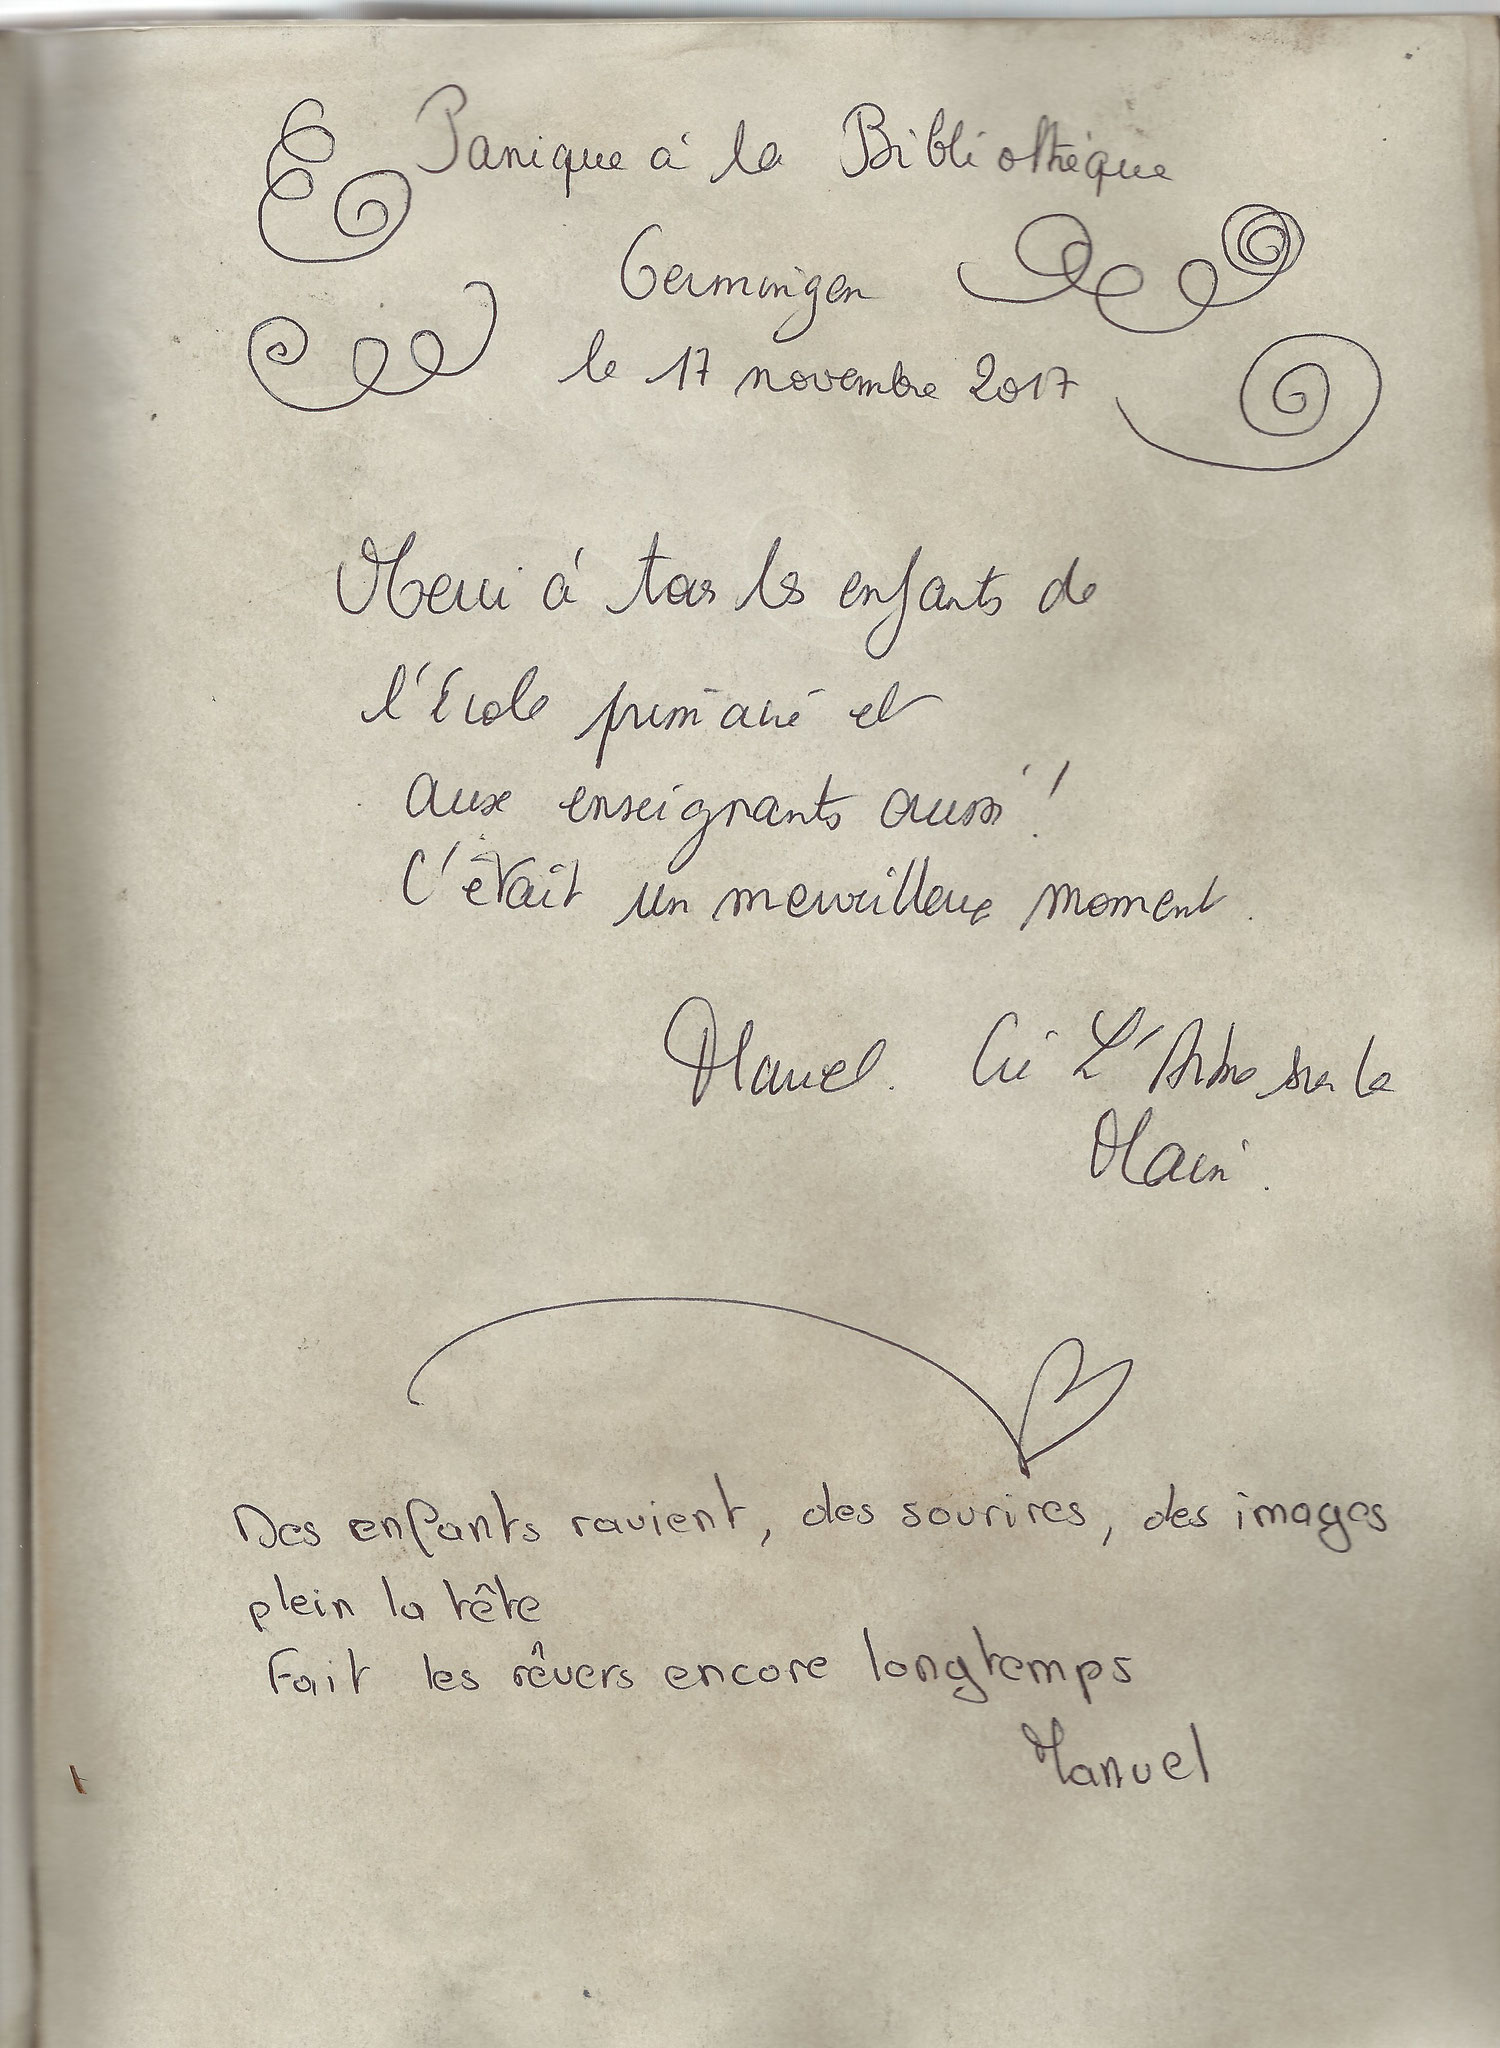 Panique à la Bibliothèque
Germingen
le 17 novembre 2017
Merci à tous les enfants de
l'école primaire et
aux enseignants aussi !
C'était un merveilleux moment.
Marcel. Cie L'Arbre sur la
Main.
Des enfants ravient, des sourires, des images
plein la tête
Fait les rêvers encore longtemps
Manuel